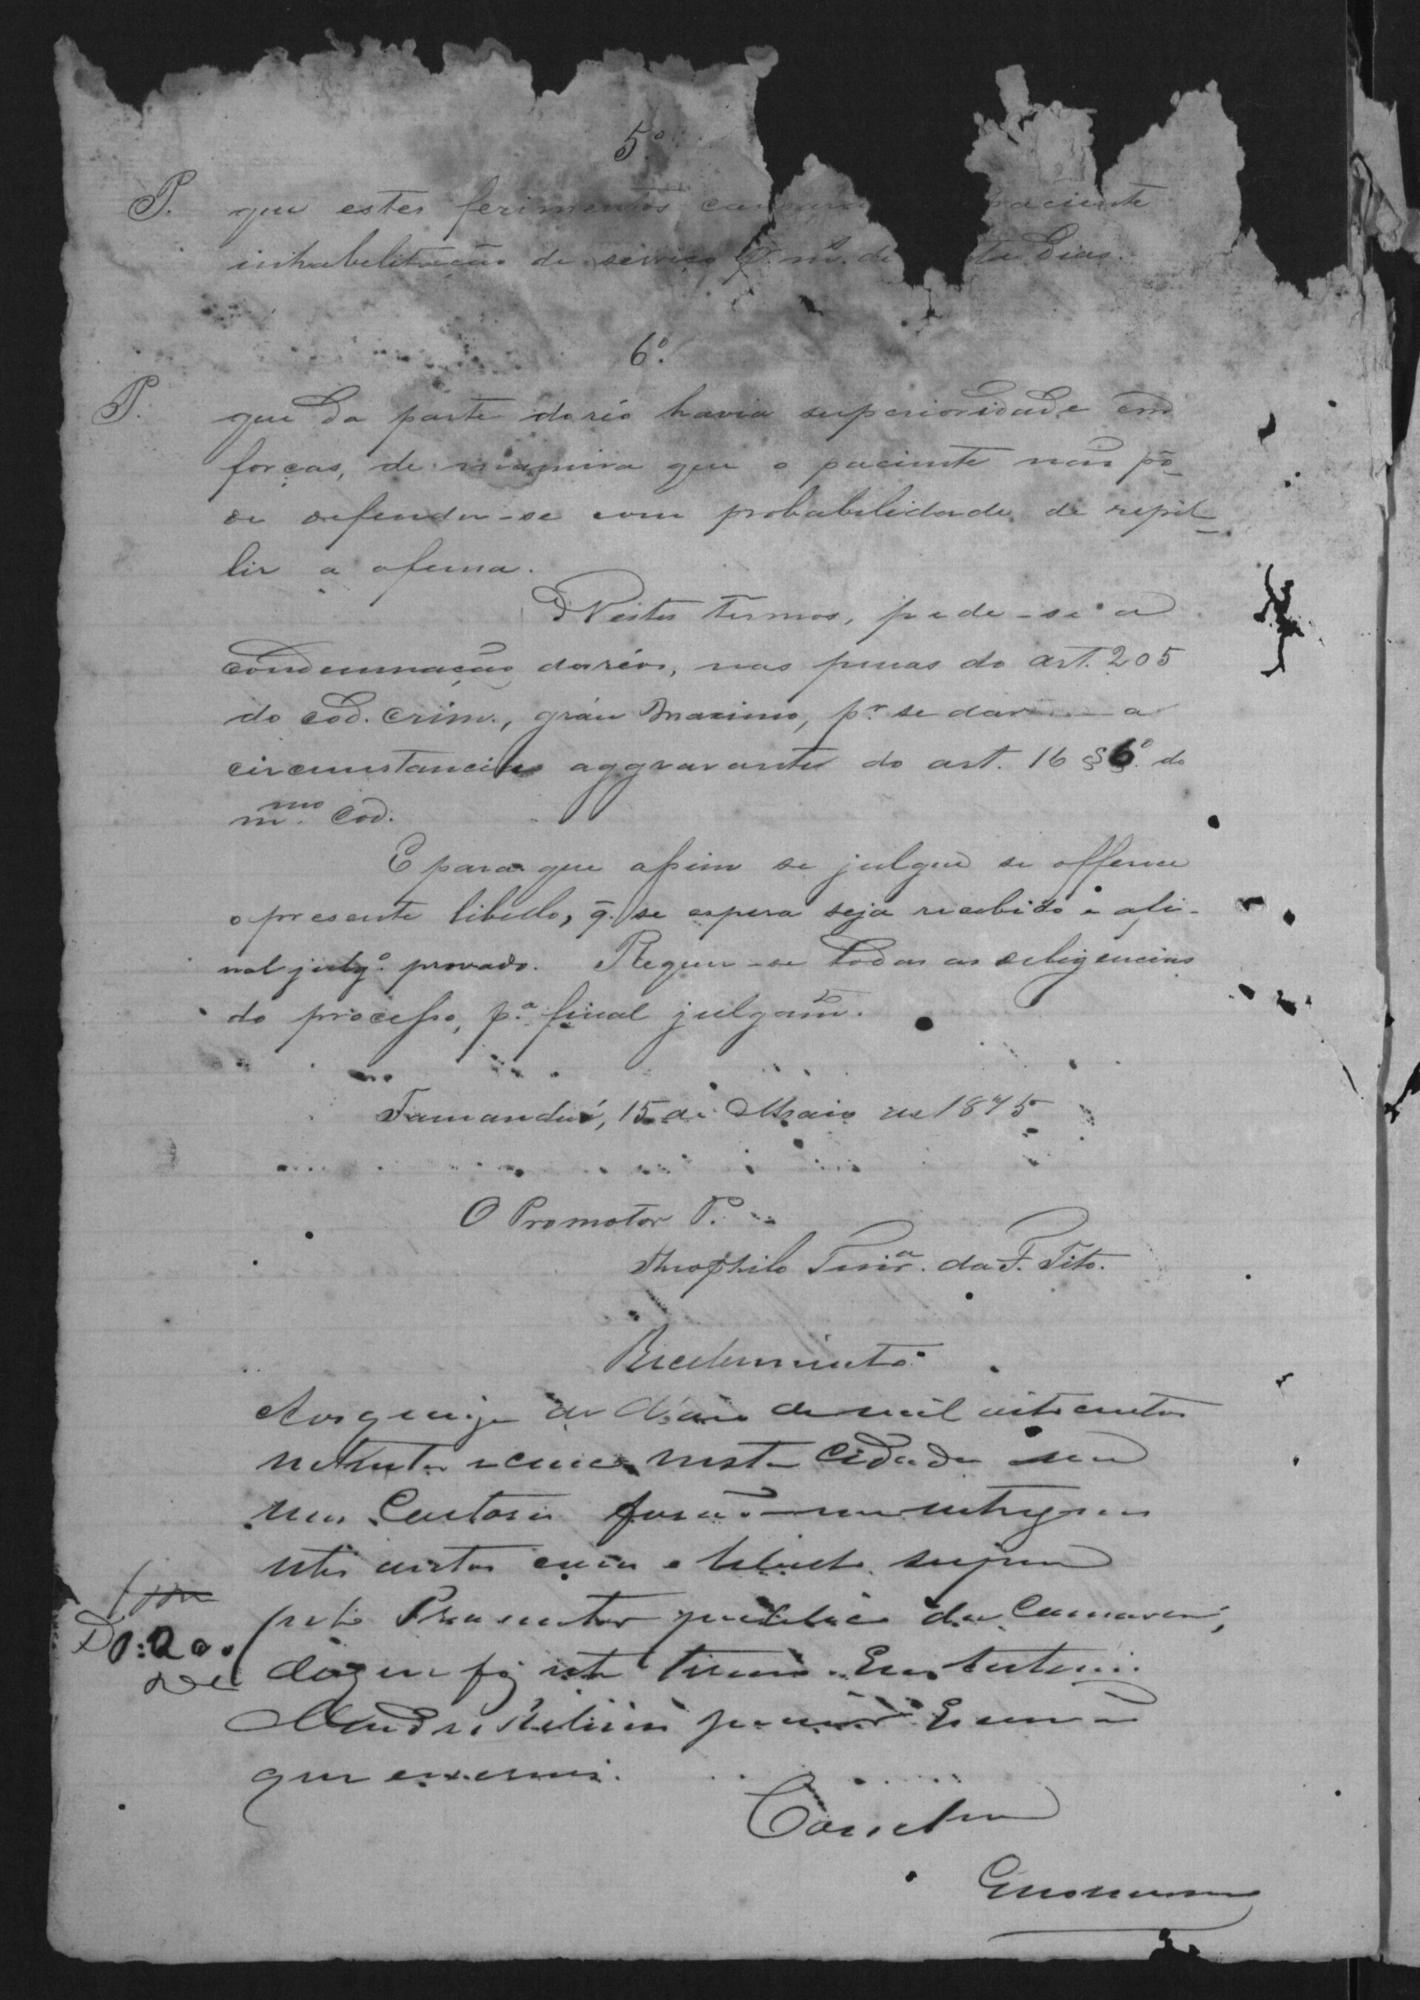 5º
P. que estes ferimentos paciente
inhabilitação de serviço p. m. de dias.
6º.
P. que da parte do réo havia superioridade em
forças, de maneira que o paciente não pô-
de defender-se com probabilidade de repel-
lir a ofensa.
Nestes termos, pede-se a
condemnação do réo, nas penas do art. 205
do cod. crim., gráu maximo, pr. se dar a
circumstancia aggravante do art. 16 § 6º do
mmo. Cod.
E para que assim se julgue se offerece
o presente libello, q. se espera seja recebido e afi-
nal julgº. provado. Requer-se todas as deligencias
do processo, pª. final julgamto.
Tamanduá, 15 de Maio de 1875
O Promotor P.
Theophilo Perª. da F. Tito.
Recebimento
Aos quinze de Maio de mil oito centos
setenta e cinco nesta Cidade em
meu Cartorio forão-me entregues
estes autos com o libello supra
pelo Promotor publico da Comarca,
do que fiz este termo. Eu
que escrevi.